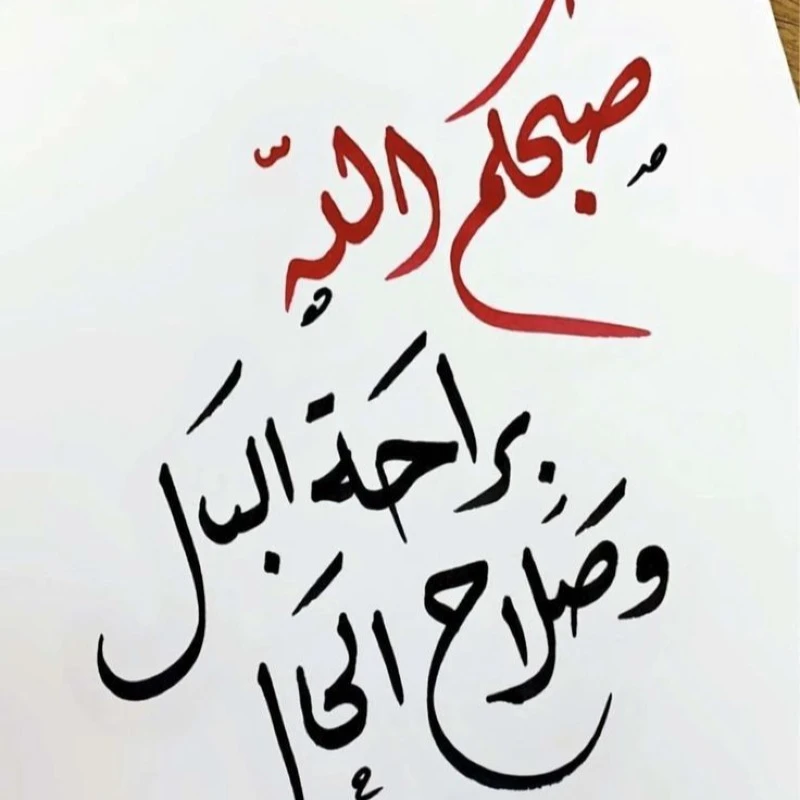 صبحكم الله
براحة البال
وصَلاح الحال